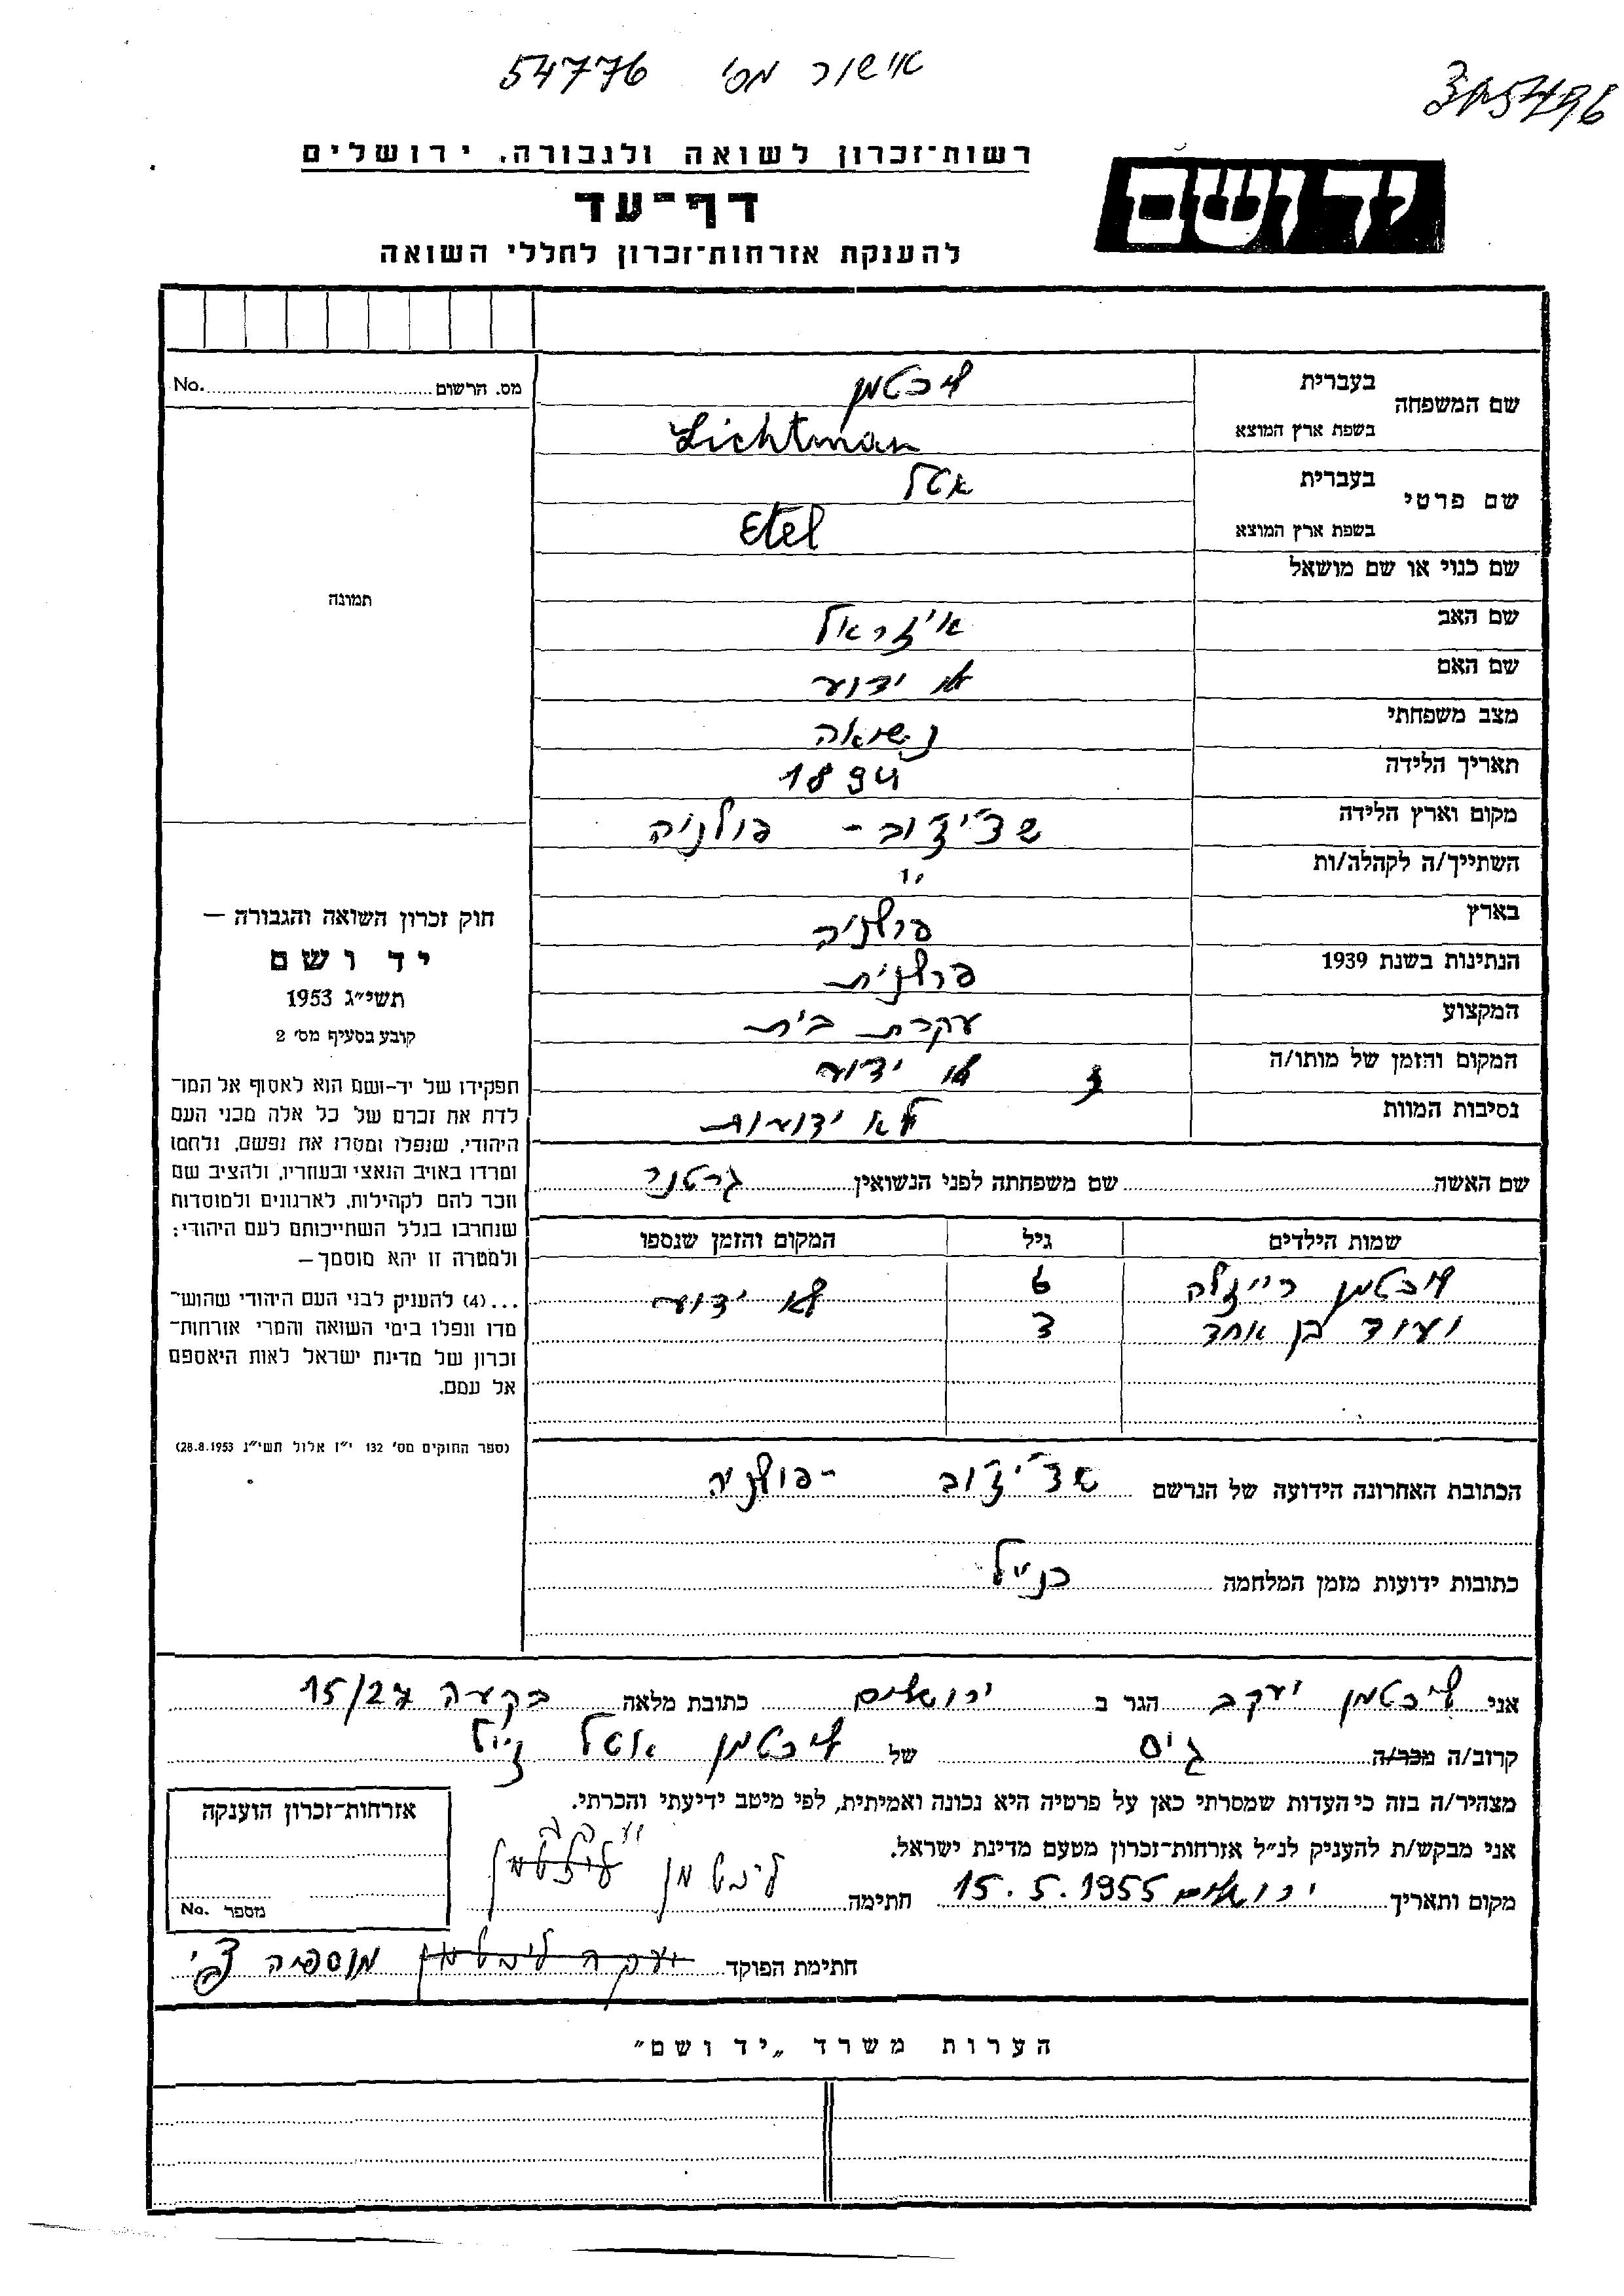 אישור מס' 54776
רשות-זכרון לשואה ולגבורה, ירושלים
יד ושם
דף-עד
להענקת אזרחות-זכרון לחללי השואה
מס. הרשום No.
תמונה
שם המשפחה
בעברית ליכטמן
בשפת ארץ המוצא Lichtman
שם פרטי
בעברית אטל
בשפת ארץ המוצא Etel
שם כנוי או שם מושאל
שם האב איזראל
שם האם לא ידוע
מצב משפחתי נשואה
תאריך הלידה 1894
מקום וארץ הלידה שצ'יז'וב - פולניה
השתייך/ה לקהלה/ות "
בארץ פולניה
הנתינות בשנת 1939 פולנית
המקצוע עקרת בית
המקום והזמן של מותו/ה לא ידוע
נסיבות המוות לא ידועות
שם האשה שם משפחתה לפני הנשואין גרטנר
שמות הילדים גיל המקום והזמן שנספו
ליכטמן רייזלה 6 לא ידוע
ועוד בן אחד 3
הכתובת האחרונה הידועה של הנרשם שצ'יז'וב - פולניה
כתובות ידועות מזמן המלחמה כנ"ל
חוק זכרון השואה והגבורה —
יד ושם
תשי״ג 1953
קובע בסעיף מס׳ 2
תפקידו של יד-ושם הוא לאסוף אל המו־
לדת את זכרם של כל אלה מבני העם
היהודי, שנפלו ומסרו את נפשם, נלחמו
ומרדו באויב הנאצי ובעוזריו, ולהציב שם
וזכר להם לקהילות, לארגונים ולמוסדות
שנחרבו בגלל השתייכותם לעם היהודי;
ולמטרה זו יהא מוסמך —
...(4) להעניק לבני העם היהודי שהוש־
מדו ונפלו בימי השואה והמרי אזרחות־
זכרון של מדינת ישראל לאות היאספם
אל עמם.
(ספר החוקים מס׳ 132 י״ז אלול תשי״ג 28.8.1953)
אני ליכטמן יעקב הגר ב ירושלים כתובת מלאה בקעה 15/27
קרוב/ה מכר/ה גיס של ליכטמן אטל ז"ל
מצהיר/ה בזה כי העדות שמסרתי כאן על פרטיה היא נכונה ואמיתית, לפי מיטב ידיעתי והכרתי.
אני מבקש/ת להעניק לנ״ל אזרחות-זכרון מטעם מדינת ישראל.
מקום ותאריך ירושלים 15.5.1955 חתימה ליכטמן יעקב
חתימת הפוקד יעקב ליכטמן
אזרחות-זכרון הוענקה
מספר No.
הערות משרד „יד ושם״